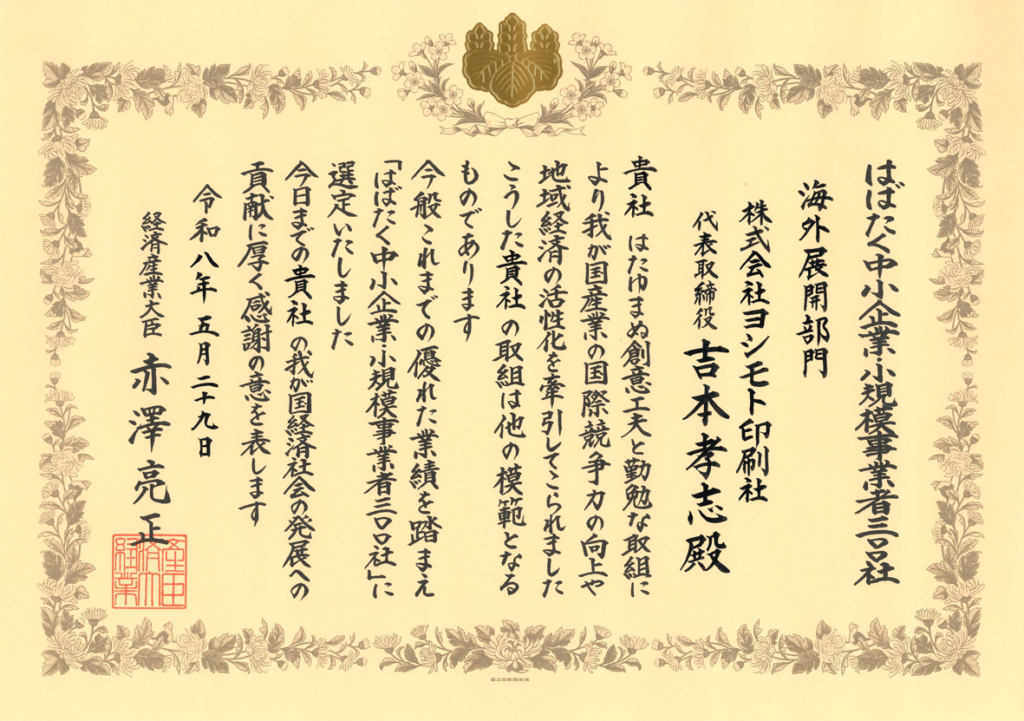 はばたく中小企業・小規模事業者三〇〇社
海外展開部門
株式会社ヨシモト印刷社
代表取締役 吉本孝志殿
貴社 はたゆまぬ創意工夫と勤勉な取組に
より我が国産業の国際競争力の向上や
地域経済の活性化を牽引してこられました
こうした貴社 の取組は他の模範となる
ものであります
今般これまでの優れた業績を踏まえ
「はばたく中小企業・小規模事業者三〇〇社」に
選定いたしました
今日までの貴社 の我が国経済社会の発展への
貢献に厚く感謝の意を表します
令和八年五月二十九日
経済産業大臣 赤澤亮正